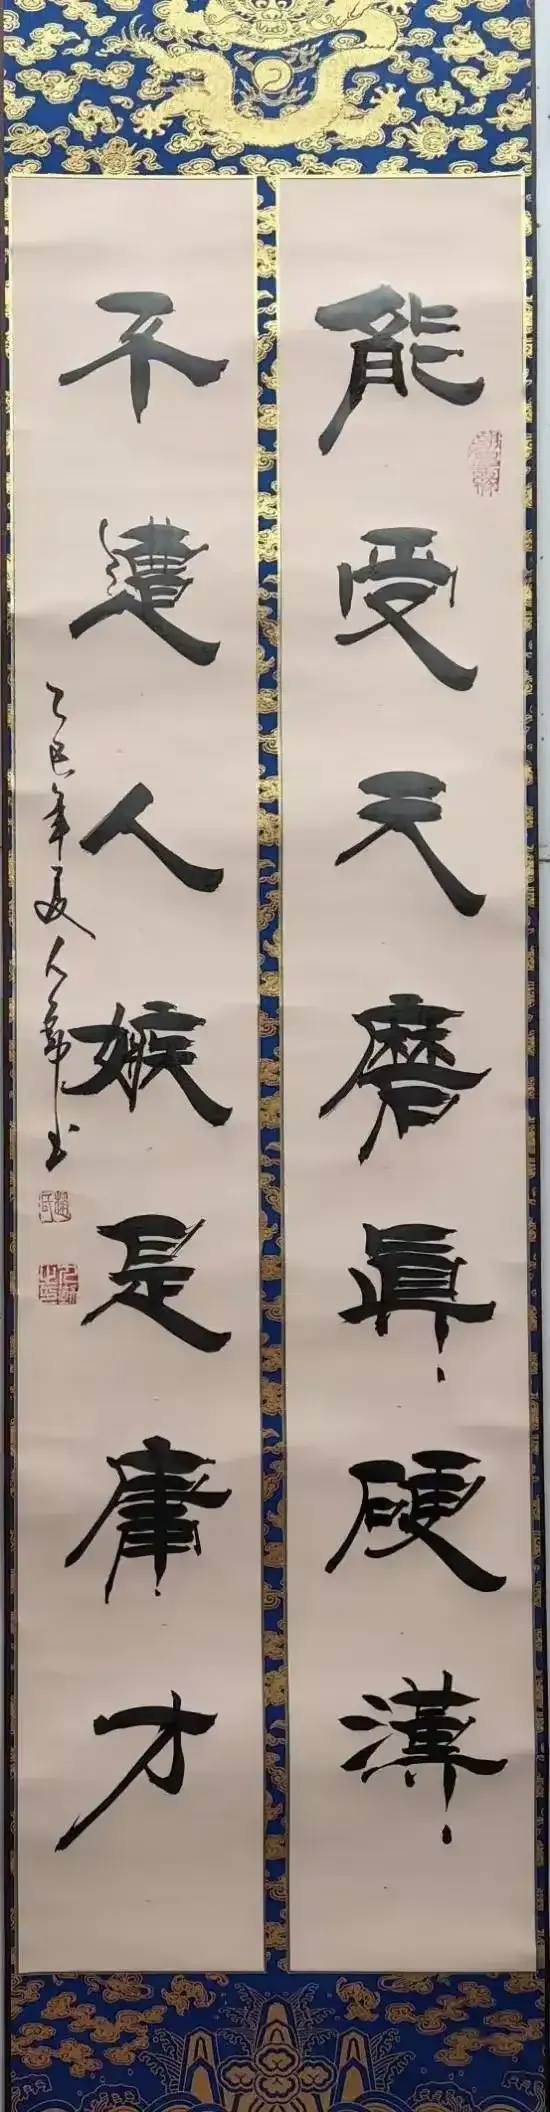 能受天磨真硬漢
不遭人嫉是庸才
乙巳年夏人龍书